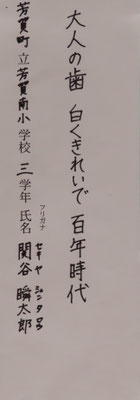 大人の歯 白くきれいで 百年時代
芳賀町立芳賀南小学校 三学年 氏名 関谷 瞬太郎
フリガナ セキヤ シュンタロウ